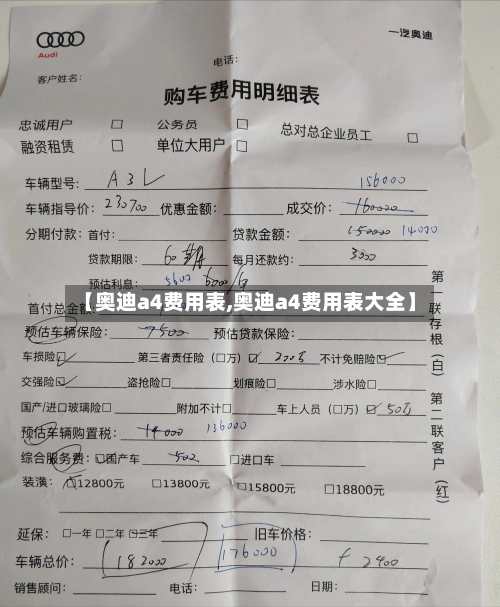 Audi
一汽奥迪
客户姓名： 电话：
购车费用明细表
忠诚用户 □ 公务员 □ 总对总企业员工 □
融资租赁 □ 单位大用户 □
车辆型号: A3L 156000
车辆指导价: 230700 优惠金额: 成交价: 160000
分期付款: 首付: 贷款金额: 150000 14000
贷款期限: 60期 每月还款约: 3000
预估利息: 5600 6000/
【奥迪a4费用表,奥迪a4费用表大全】
首付总金额
预估车辆保险: 7500 预估贷款保险:
车损险☑ 第三者责任险（□万）☑ 200万 不计免赔险☑
交强险☑ 盗抢险□ 划痕险□ 涉水险□
国产/进口玻璃险□ 附加不计□ 车上人员（□万）☑ 50万
预估车辆购置税: 14000 136000
综合服务费: ☑国产车 502 □进口车
装潢: ☑12800元 □13800元 □15800元 □18800元
延保: □一年 □二年 □三年 旧车价格:
车辆总价: 182000 176000 + 2400
销售顾问: 电话: 日期:
第一联存根（白）
第二联客户（红）